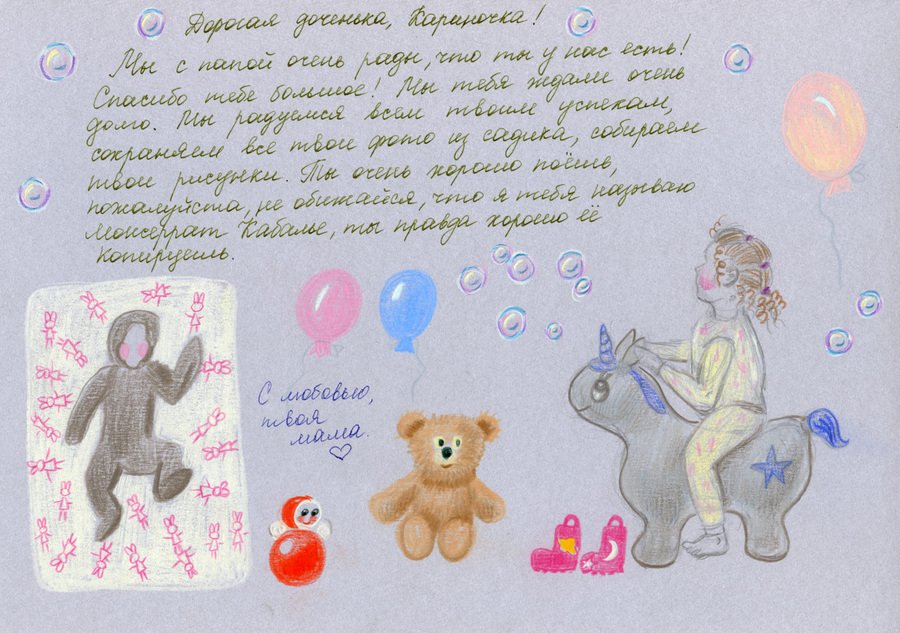 Дорогая доченька, Кариночка!
Мы с папой очень рады, что ты у нас есть!
Спасибо тебе большое! Мы тебя ждали очень
долго. Мы радуемся всем твоим успехам,
сохраняем все твои фото из садика, собираем
твои рисунки. Ты очень хорошо поёшь,
пожалуйста, не обижайся, что я тебя называю
Монсеррат Кабалье, ты правда хорошо её
копируешь.
С любовью,
твоя
мама.